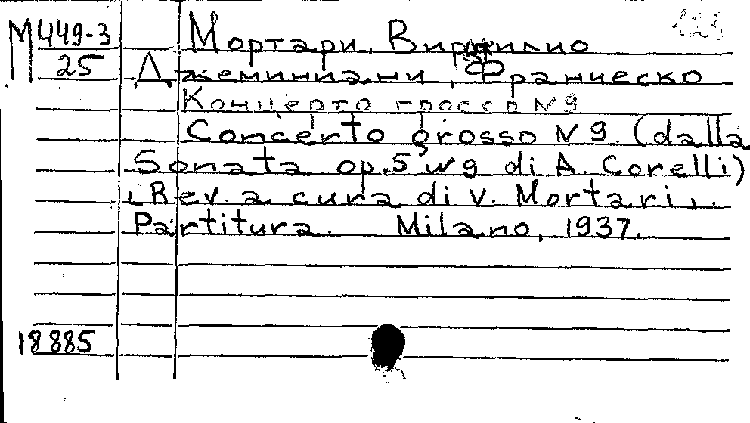 М 449-3 Мортари, Вирджилио
25 Джеминиани, Франческо
Концерто гроссо N9
Concerto grosso N9 (dalla
Sonata op.5 N9 di A. Corelli)
(Rev. a cura di V. Mortari).
Partitura. Milano, 1937.
18885